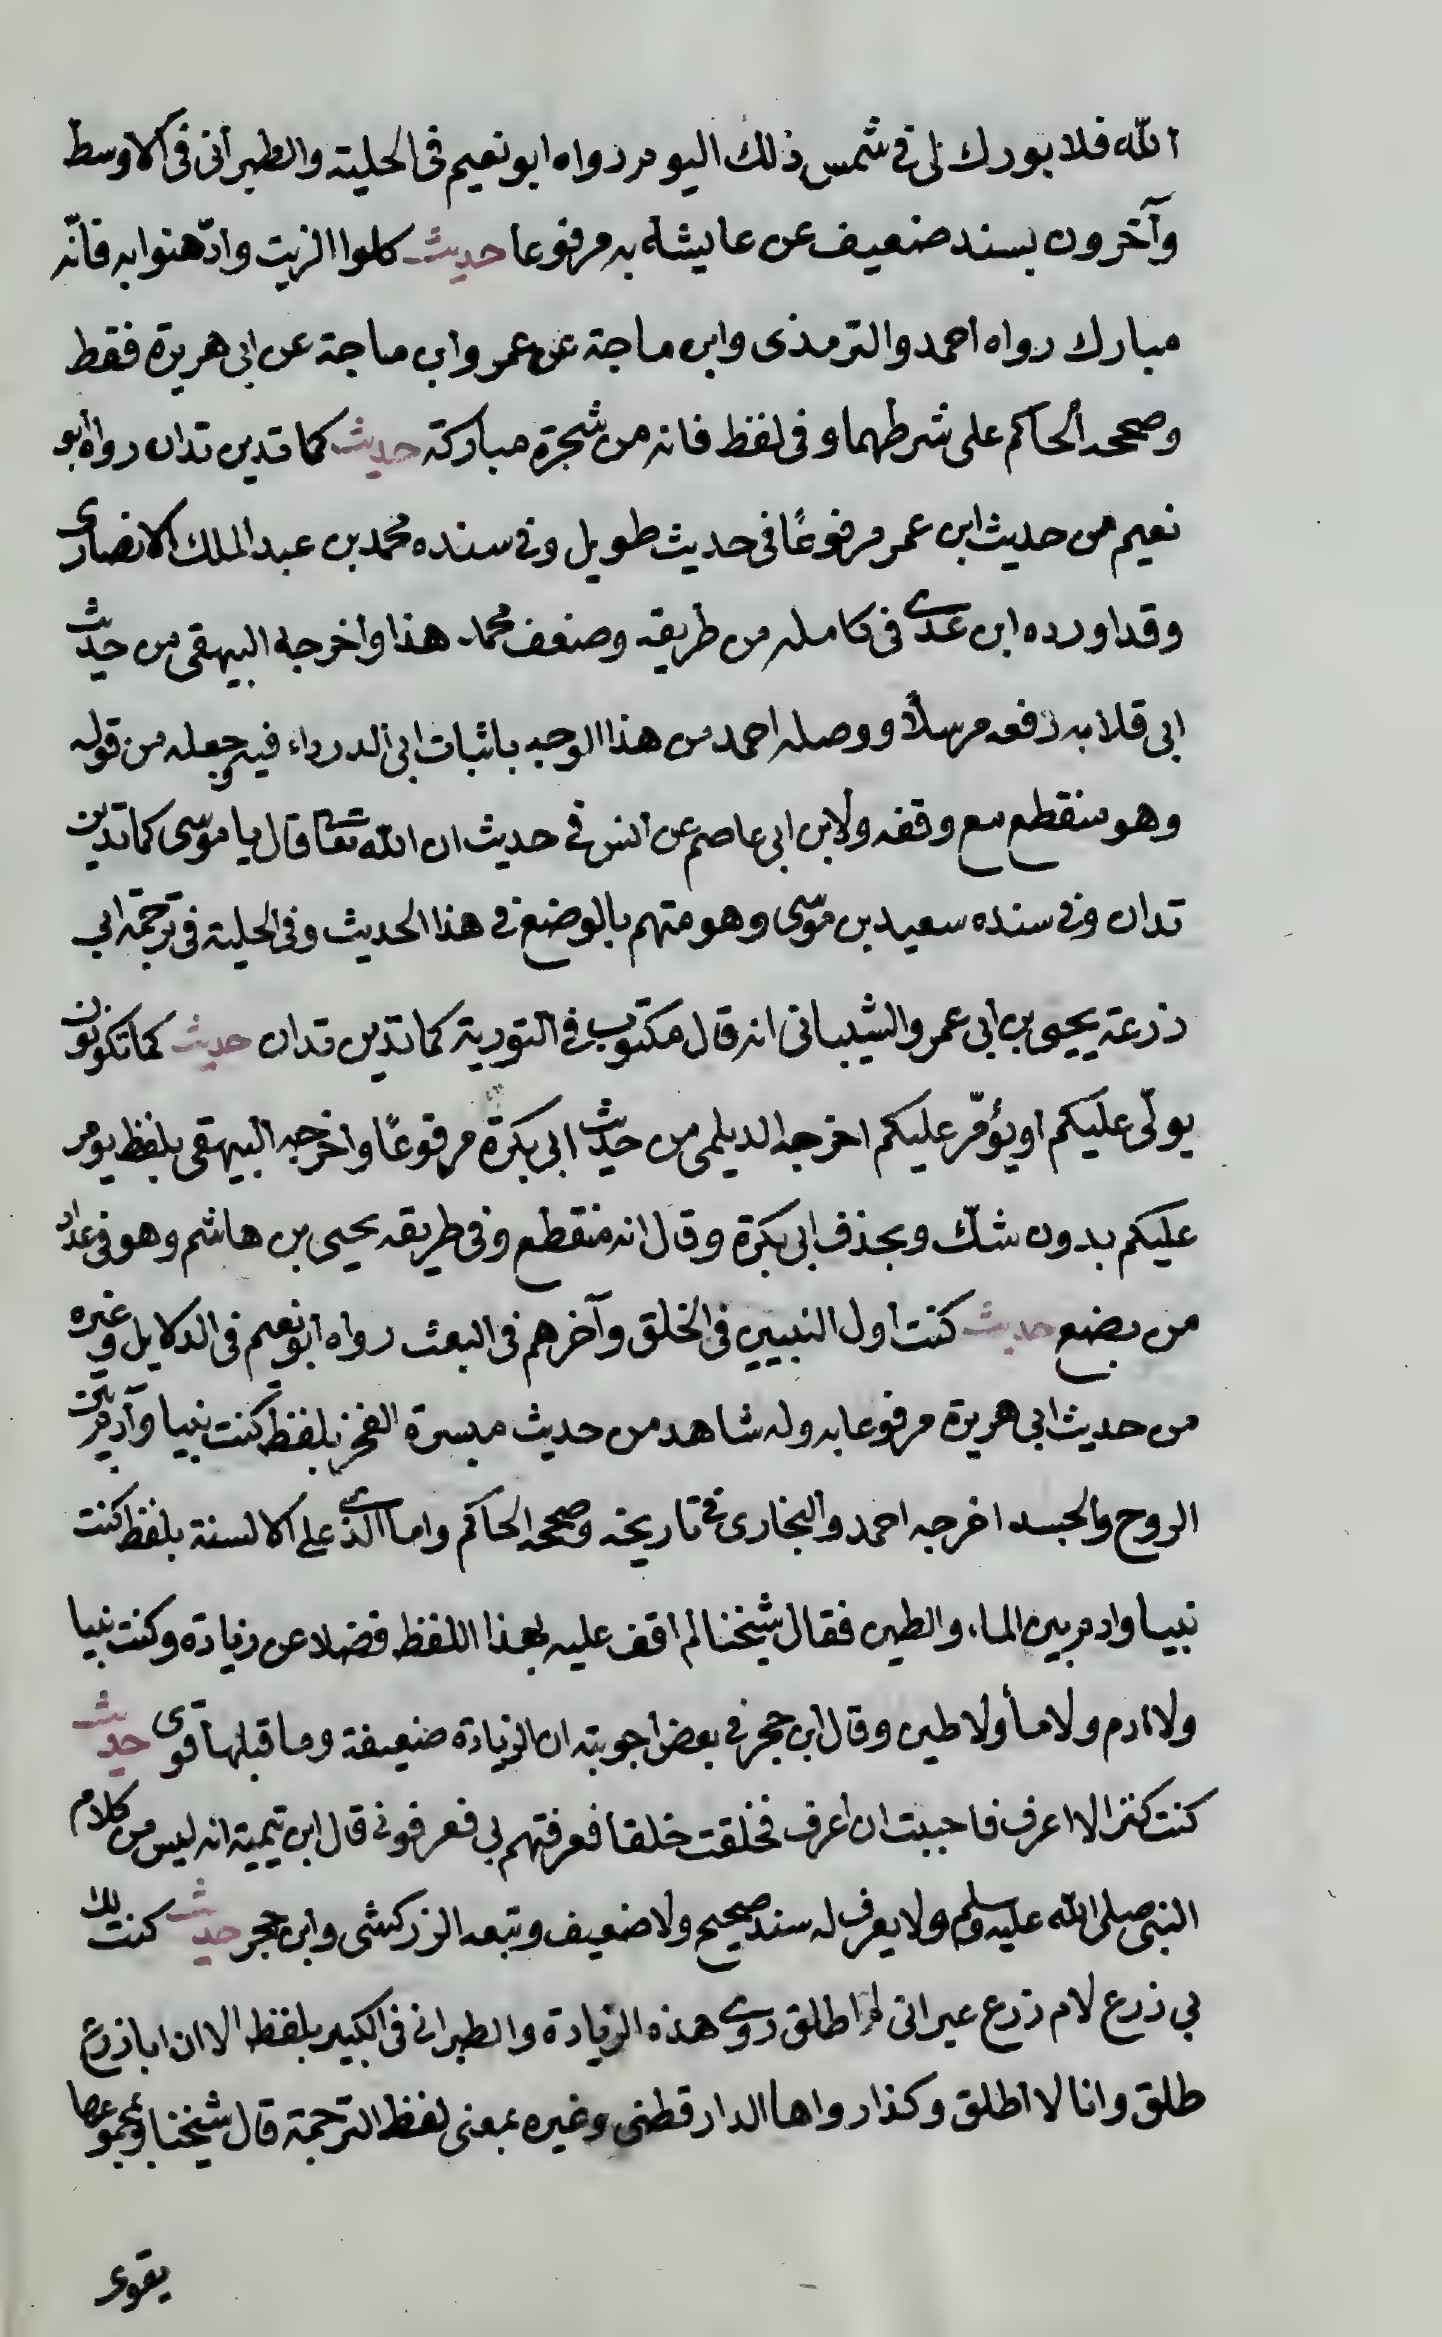 الله فلا بورك لى فى شمس ذلك اليوم رواه ابو نعيم فى الحلية والطبرانى فى الاوسط
وآخرون بسند ضعيف عن عايشة به مرفوعا حديث كلوا الزيت وادّهنوا به فانّه
مبارك رواه احمد والترمذى وابن ماجة عن عمر وابن ماجة عن ابى هريرة فقط
وصححه الحاكم على شرطهما وفى لفظ فانه من شجرة مباركة حديث كما تدين تدان رواه ابو
نعيم من حديث ابن عمر مرفوعًا فى حديث طويل وفى سنده محمد بن عبد الملك الانصارى
وقد اورده ابن عدى فى كامله من طريقه وضعف محمد هذا واخرجه البيهقى من حديث
ابى قلابه رفعه مرسلًا ووصله احمد من هذا الوجه باثبات ابى الدرداء فيه وجعله من قوله
وهو منقطع مع وقفه ولابن ابى عاصم عن انس فى حديث ان الله تعا قال يا موسى كما تدين
تدان وفى سنده سعيد بن موسى وهو متهم بالوضع فى هذا الحديث وفى الحلية فى ترجمة ابى
زرعة يحيى بن ابى عمرو الشيبانى انه قال مكتوب فى التورية كما تدين تدان حديث كما تكونون
يولّى عليكم او يؤمّر عليكم اخرجه الديلمى من حديث ابى بكرة مرفوعًا واخرجه البيهقى بلفظ يومر
عليكم بدون شكّ وبحذف ابى بكرة وقال انه منقطع وفى طريقه يحيى بن هاشم وهو فى عداد
من يضع حديث كنت اول النبيين فى الخلق وآخرهم فى البعث رواه ابو نعيم فى الدلايل وغيره
من حديث ابى هريرة مرفوعا به وله شاهد من حديث ميسرة الفخر بلفظ كنت نبيا وآدم بين
الروح والجسد اخرجه احمد والبخارى فى تاريخه وصححه الحاكم واما الذى على الالسنة بلفظ كنت
نبيا وادم بين الماء والطين فقال شيخنا لم اقف عليه بهذا اللفظ فضلا عن زيادة وكنت نبيا
ولا ادم ولا ماء ولا طين وقال ابن حجر فى بعض اجوبته ان الزيادة ضعيفة وما قبلها قوى حديث
كنت كنزا لا اعرف فاحببت ان اعرف فخلقت خلقا فعرفتهم بى فعرفونى قال ابن تيمية انه ليس من كلام
النبى صلى الله عليه وسلم ولا يعرف له سند صحيح ولا ضعيف وتبعه الزركشى وابن حجر حديث كنت لك
بى زرع لام زرع غير انى لا اطلق روى هذه الزيادة والطبرانى فى الكبير بلفظ الا ان ابا زرع
طلق وانا لا اطلق وكذا رواها الدارقطنى وغيره بمعنى لفظ الترجمة قال شيخنا ومجموعها
يقوى